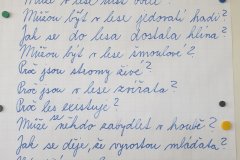 Můžou být v lese jedovatí hadi?
Jak se do lesa dostala hlína?
Můžou být v lese šmoulové?
Proč jsou stromy živé?
Proč jsou v lese zvířata?
Proč les existuje?
Může se někdo zabydlet v houbě?
Jak se děje, že vyrostou mláďata?